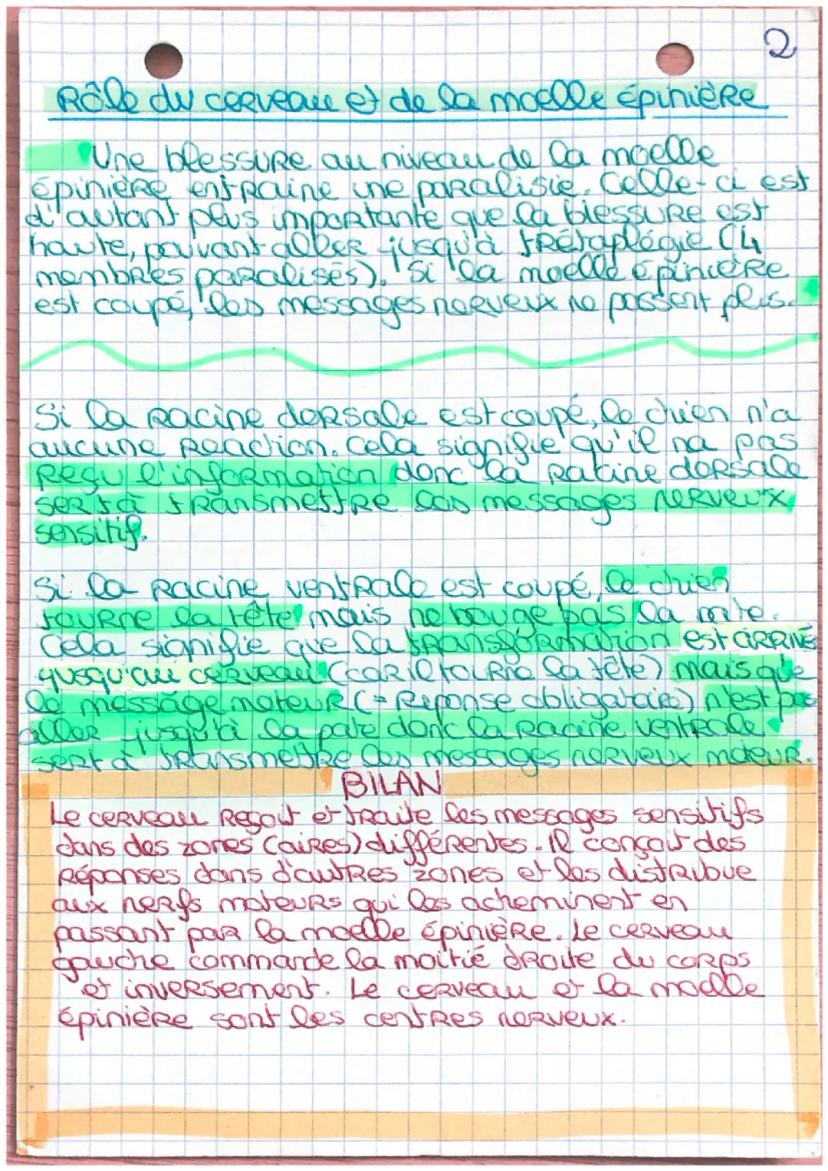 2
Rôle du cerveau et de la moelle épinière
Une blessure au niveau de la moelle
épinière entraine une paralisie. Celle-ci est
d'autant plus importante que la blessure est
haute, pouvant aller jusqu'à trétaplégie (4
membres paralisés). Si la moelle épinière
est coupé, les messages nerveux ne passent plus.
Si la racine dorsale est coupé, le chien n'a
aucune reaction. Cela signifie qu'il na pas
reçu l'information donc la racine dorsale
sert à transmettre les messages nerveux
sensitif.
Si la racine ventrale est coupé, le chien
tourne la tête mais ne bouge pas la
Cela signifie que la transformation est arrivé
jusqu'au cerveau (car il la tête) mais que
le message moteur (= Réponse obligatoire) n'est pas
aller jusqu'à la pate donc la racine ventrale
sert à transmettre les messages nerveux moteur.
BILAN
Le cerveau reçoit et traite les messages sensitifs
dans des zones (aires) différentes. Il conçoit des
réponses dans d'autres zones et les distribue
aux nerfs moteurs qui les acheminent en
passant par la moelle épinière. Le cerveau
gauche commande la moitié droite du corps
et inversement. Le cerveau et la moelle
épinière sont les centres nerveux.